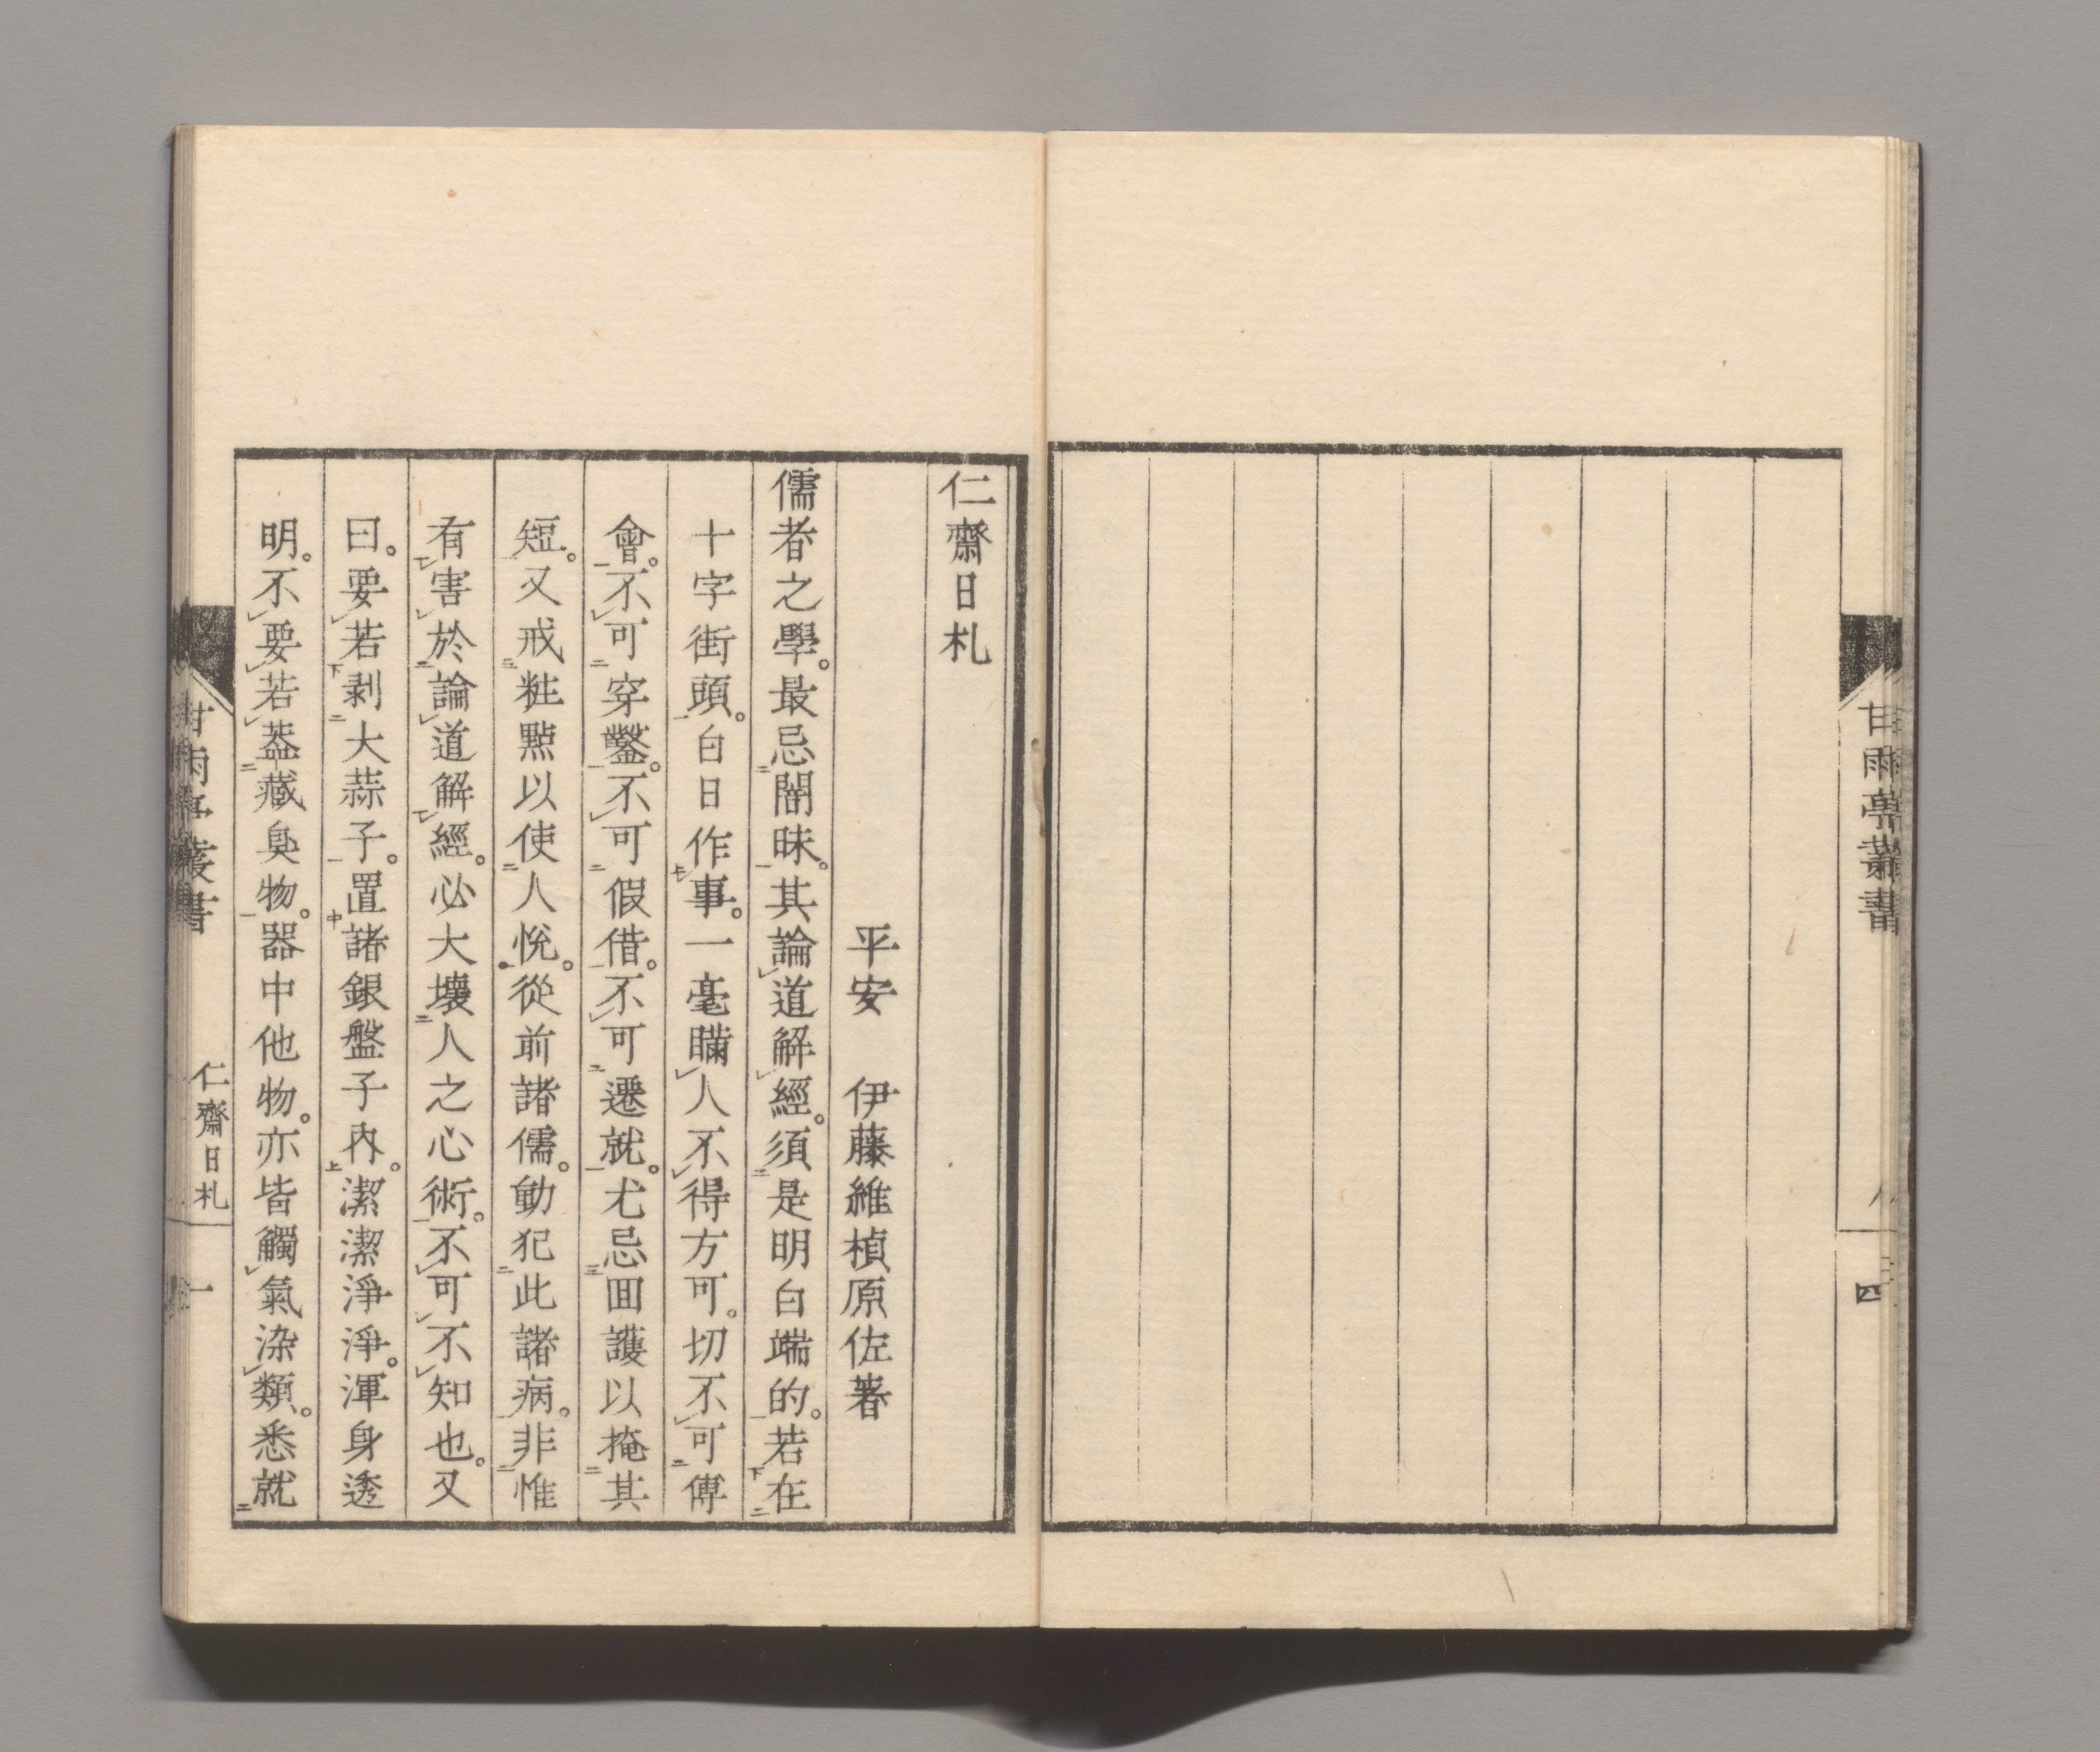 甘雨亭叢書
四
仁齋日札
平安　伊藤維楨原佐著
儒者之學。最忌闇昧。其論道解經。須是明白端的。若在
十字街頭。白日作事。一毫瞞人不得方可。切不可傅
會。不可穿鑿。不可假借。不可遷就。尤忌囬護以掩其
短。又戒粧點以使人悅。從前諸儒。動犯此諸病。非惟
有害於論道解經。必大壞人之心術。不可不知也。又
曰。要若剥大蒜子。置諸銀盤子內。潔潔淨淨。渾身透
明。不要若葢藏臭物。器中他物。亦皆觸氣染類。悉就
甘雨亭叢書
仁齋日札
一